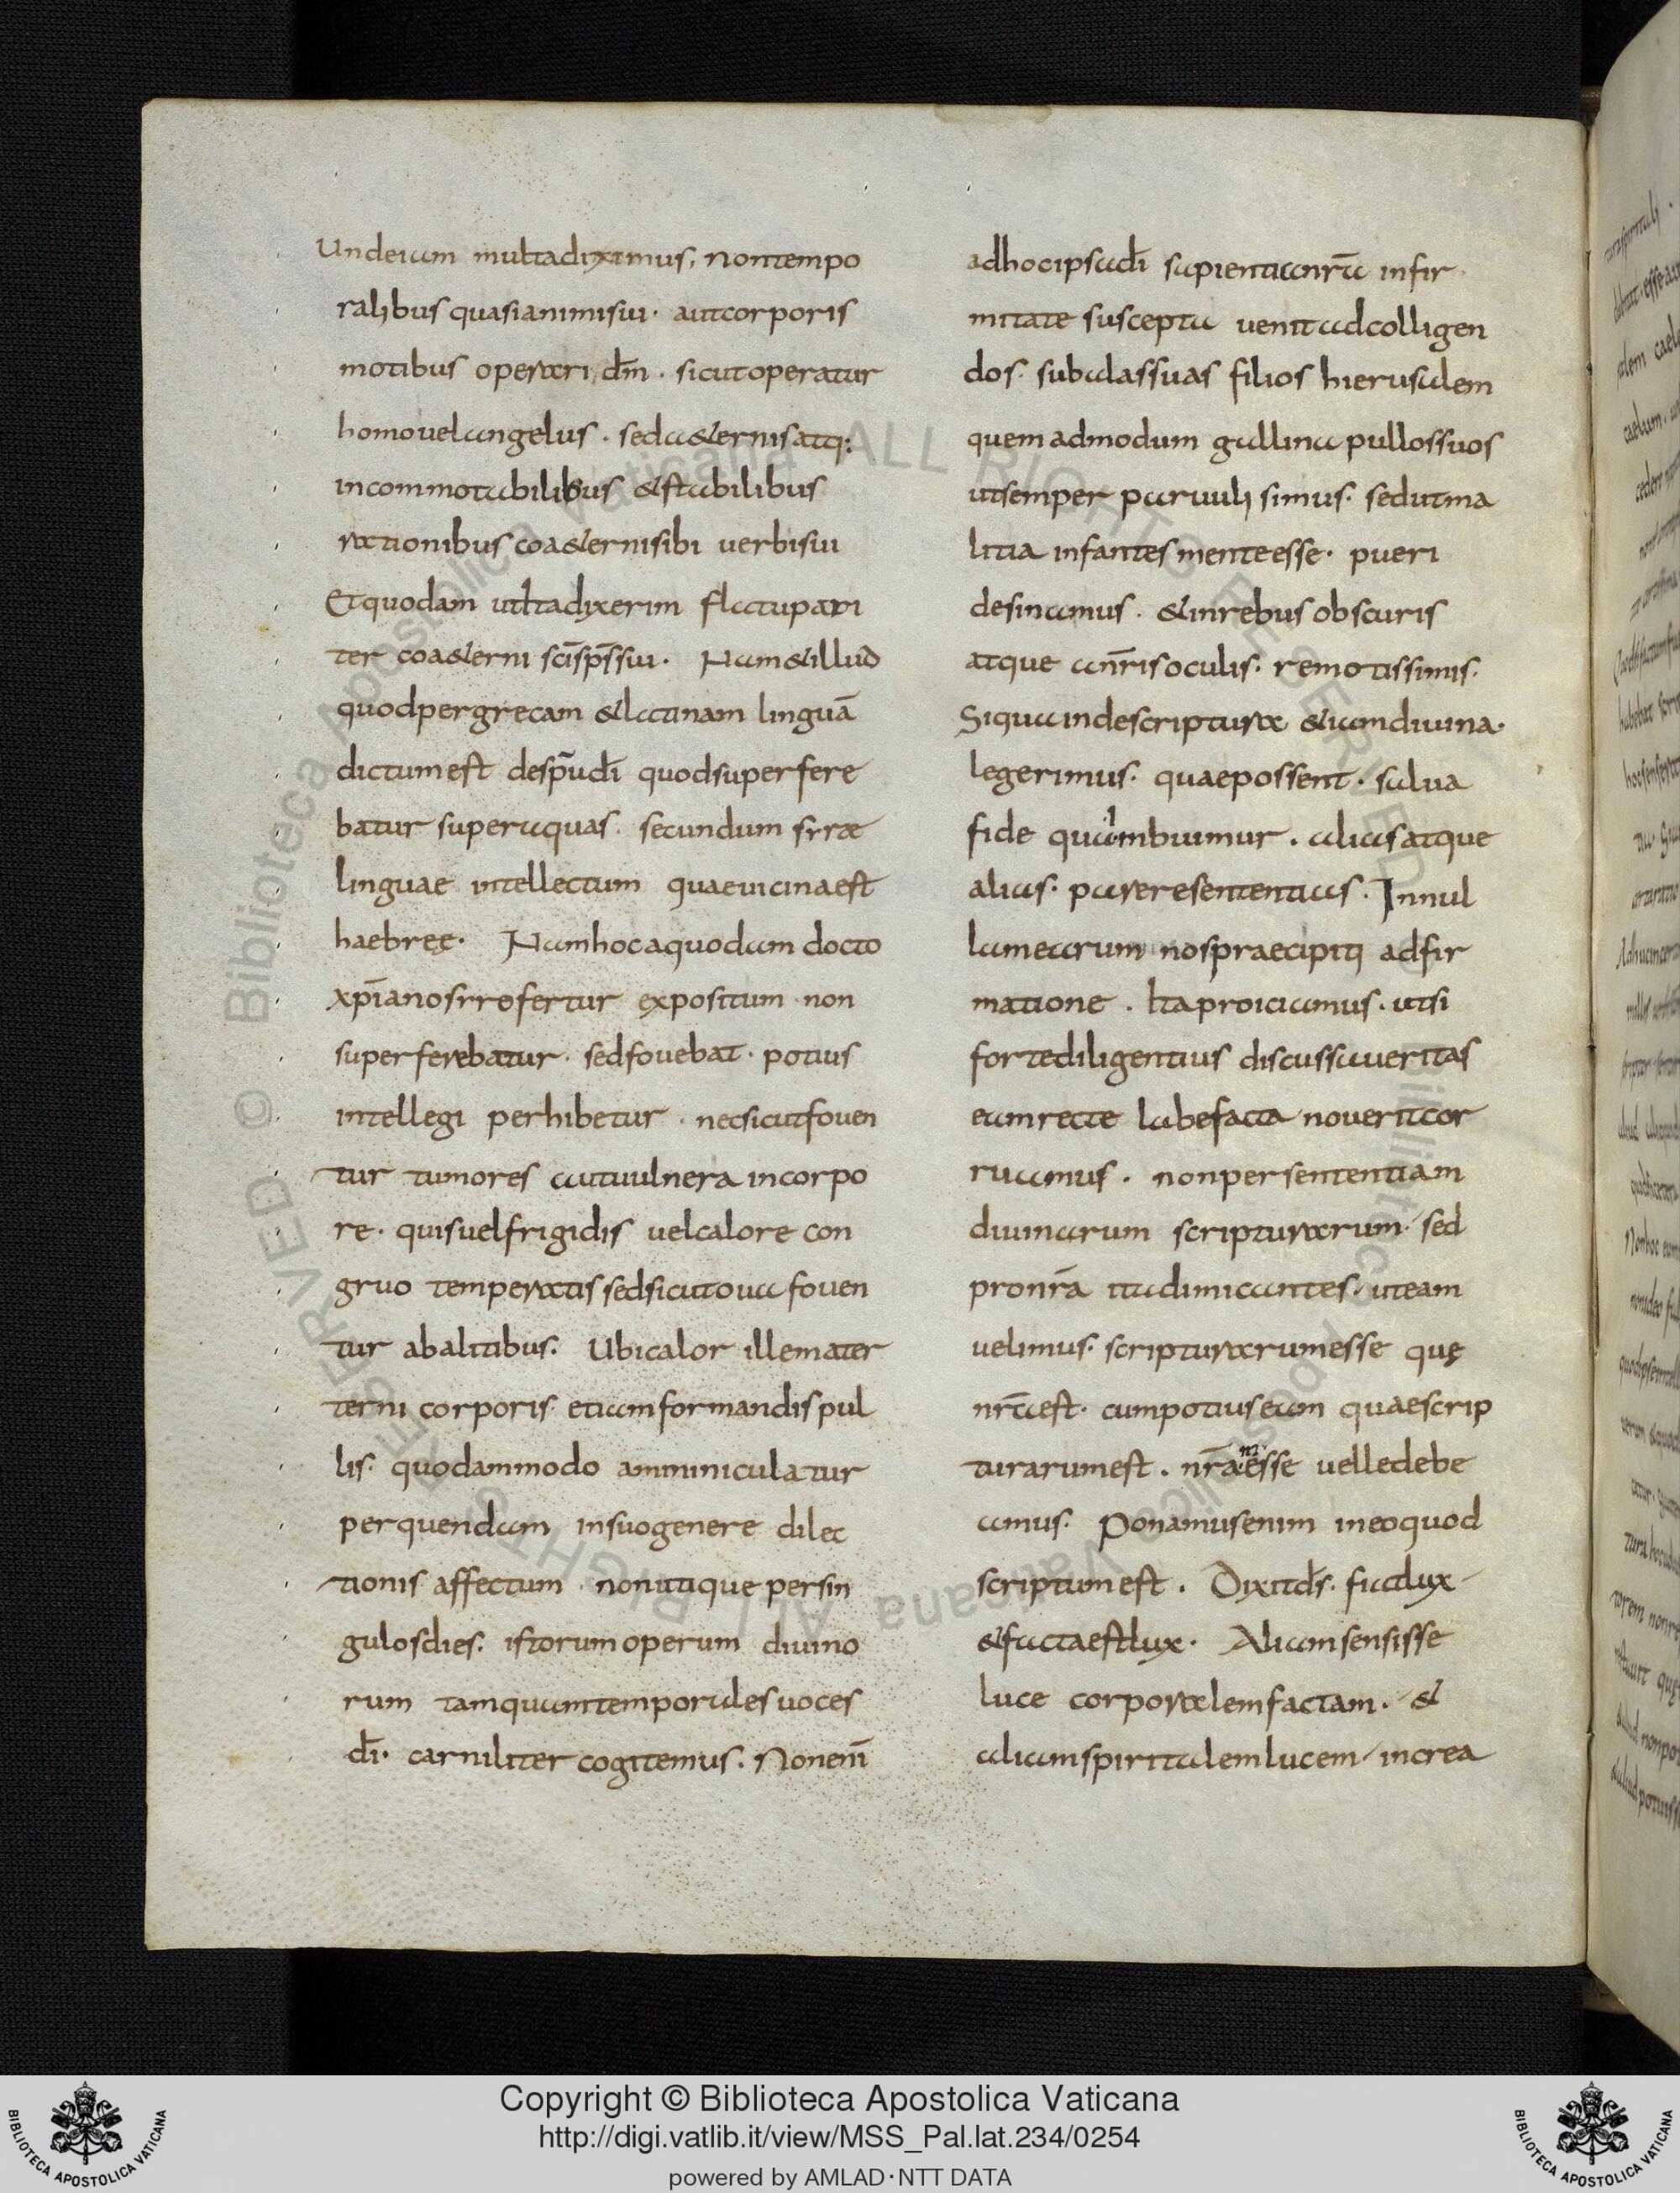 Undeiam multadiximus, nontempo
ralibus quasianimisui· autcorporis
motibus operari dm̄ . sicutoperatur
homouelangelus . seda&ernisatq:
incommotabilibus &stabilibus
rationibus coa&ernisibi uerbisui
Etquodam utltadixerim flatupari
ter coa&erni sc̄isps̄sui· Nam&illud
quodpergrecam &latinam linguā
dictumest desp̄udī quodsuperfere
batur superaquas. secundum srrae
linguae intellectum quaeuicinaest
haebreę· Namhocaquodam docto
xp̄ianosrrofertur expositum non
superferebatur· sedfouebat· potius
intellegi perhibetur . necsicutfouen
tur tumores autuulnera incorpo
re· quisuelfrigidis uelcalore con
gruo temperatis sedsicutoua fouen
tur abalitibus. Ubicalor illemater
terni corporis etiamformandispul
lis. quodammodo amminiculatur
perquendam insuogenere dilec
tionis affectum . nonutique persin
gulosdies. istorum operum diuino
rum tamquamtemporalesuoces
dī· carniliter cogitemus. Nonenī
adhocipsadī sapientianrā infir
mitate suscepta uenitadcolligen
dos· subalassuas filios hierusalem
quemadmodum gallina pullossuos
utsemper paruuli simus· sedutma
litia infantes menteesse· pueri
desinamus . &inrebus obscuris
atque anr̄isoculis· remotissimis·
Siquaindescriptura &iamdiuina·
legerimus· quaepossent· salua
fide quaimbuimur . aliasatque
alias· pareresententias. Innul
lamearum nospraecipiti adfir
matione . Itaproiciamus· utsi
fortediligentius discussaueritas
eamrecte labefacta nouerit cor
ruamus . nonpersententiam
diuinarum scripturarum sed
pronr̄a itadimicantes· uteam
uelimus· scripturarumesse quę
nr̄aest· cumpotiuseam quaescrip
turarumest . nr̄amesse uelledebe
amus· Ponamusenim ineoquod
scriptumest . Dixitds̄· fiatlux
&factaestlux· Aliamsensisse
luce corporalemfactam· &
aliamspiritalemlucem increa
Copyright © Biblioteca Apostolica Vaticana
http://digi.vatlib.it/view/MSS_Pal.lat.234/0254
powered by AMLAD·NTT DATA